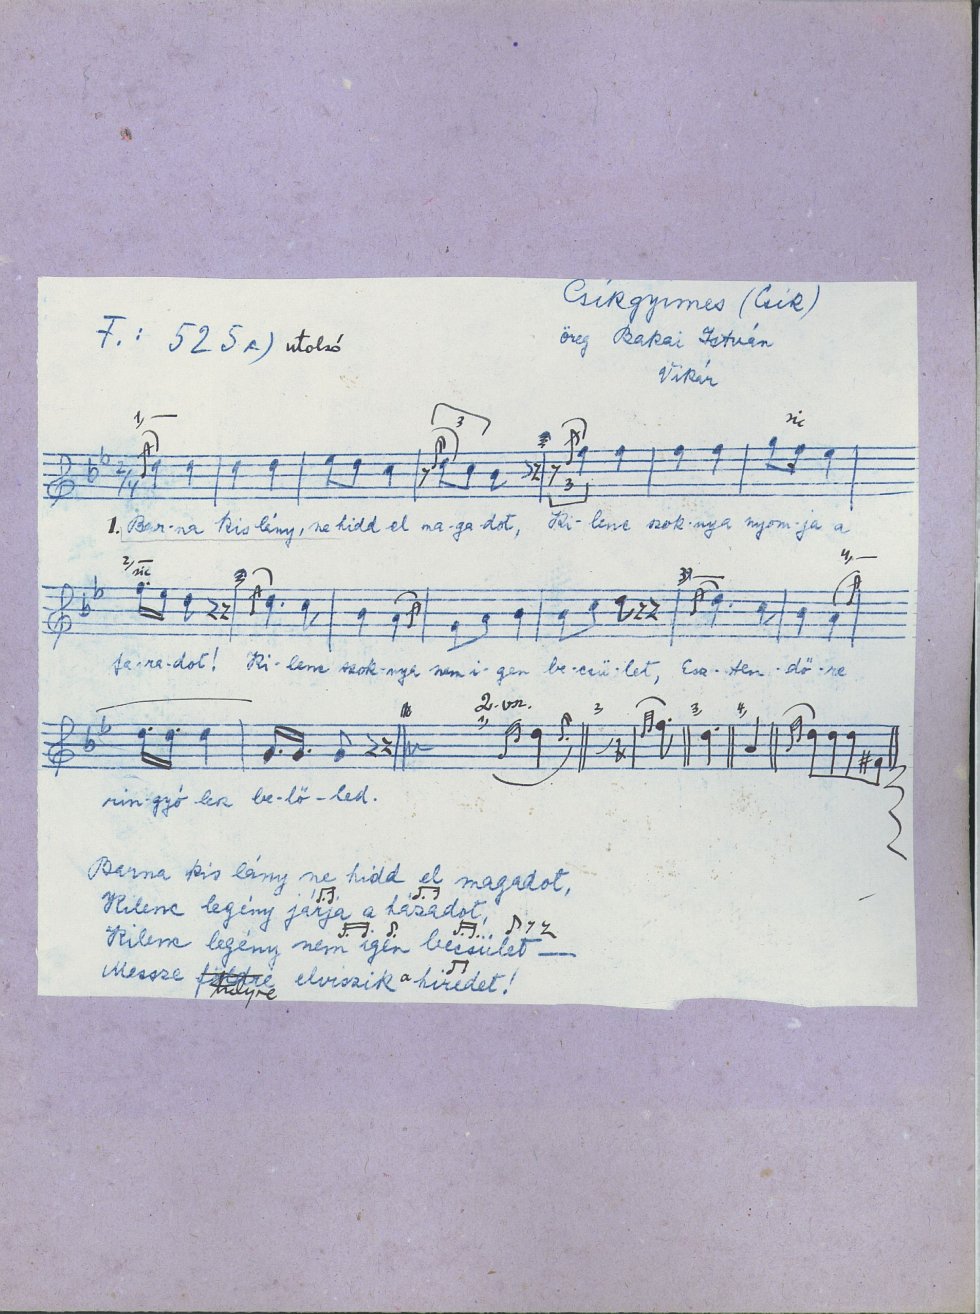 Csíkgyimes (Csík)
F.: 525 a) utolsó
öreg Bakai István
Vikár
1, 3 sic
2/4 3
1. Bar-na kis lány, ne hidd el ma-ga-dot, Ki-lenc szok-nya nyom-ja a
2, sic 4,
fa-ra-dot! Ki-lenc szok-nya nem i-gen be-csü-let, Esz-ten-dő-re
2. vsz.
1, 3, 4,
rin-gyó lesz be-lő-led.
Barna kis lány ne hidd el magadot,
Kilenc legény járja a házadot,
Kilenc legény nem igen becsület —
Messze helyre elviszik a hiredet!